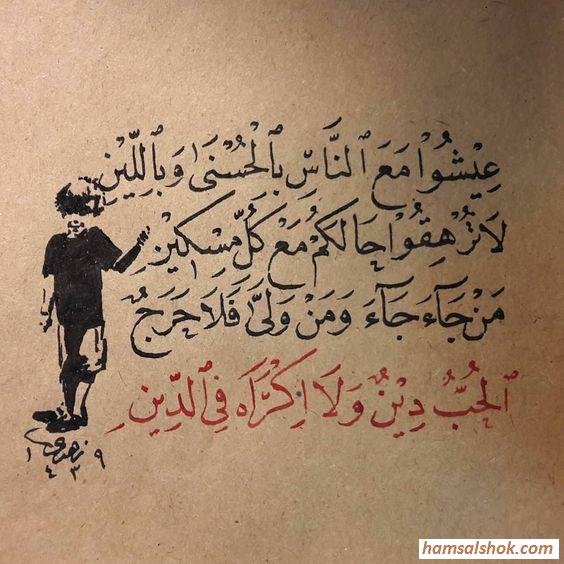 عِيْشُوْا مَعَ ٱلنَّاسِ بِٱلْحُسْنَىٰ وَبِٱللِّيْنِ
لَا تُرْهِقُوْا حَالَكُمْ مَعْ كُلِّ مِسْكِيْنِ
مَنْ جَآءَ جَآءَ وَمَنْ وَلَّىٰ فَلَا حَرَجٌ
ٱلْحُبُّ دِيْنٌ وَلَا إِكْرَاهَ فِي ٱلدِّيْنِ
١٤٣٩
hamsalshok.com